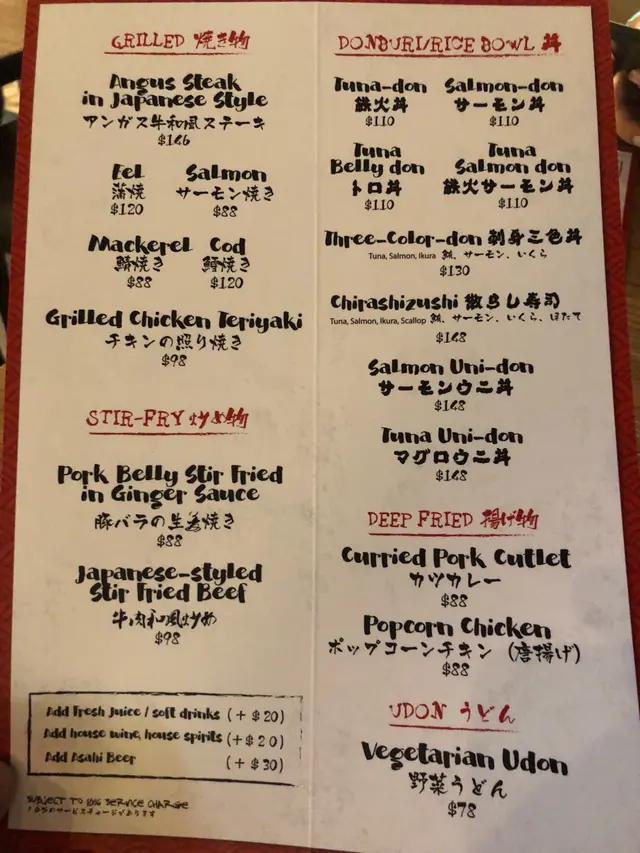 GRILLED 焼き物
Angus Steak
in Japanese Style
アンガス牛和風ステーキ
$146
Eel
蒲焼
$120
Salmon
サーモン焼き
$88
Mackerel
鯖焼き
$88
Cod
鱈焼き
$120
Grilled Chicken Teriyaki
チキンの照り焼き
$98
STIR-FRY 炒め物
Pork Belly Stir Fried
in Ginger Sauce
豚バラの生姜焼き
$88
Japanese-styled
Stir Fried Beef
牛肉和風炒め
$98
Add Fresh Juice / soft drinks (+ $20)
Add house wine, house spirits (+ $20)
Add Asahi Beer (+ $30)
SUBJECT TO 10% SERVICE CHARGE
10%のサービスチャージがあります
DONBURI/RICE BOWL 丼
Tuna-don
鉄火丼
$110
Salmon-don
サーモン丼
$110
Tuna
Belly don
トロ丼
$110
Tuna
Salmon don
鉄火サーモン丼
$110
Three-Color-don 刺身三色丼
Tuna, Salmon, Ikura 鮪、サーモン、いくら
$130
Chirashizushi 散らし寿司
Tuna, Salmon, Ikura, Scallop 鮪、サーモン、いくら、ほたて
$148
Salmon Uni-don
サーモンウニ丼
$148
Tuna Uni-don
マグロウニ丼
$148
DEEP FRIED 揚げ物
Curried Pork Cutlet
カツカレー
$88
Popcorn Chicken
ポップコーンチキン (唐揚げ)
$88
UDON うどん
Vegetarian Udon
野菜うどん
$78